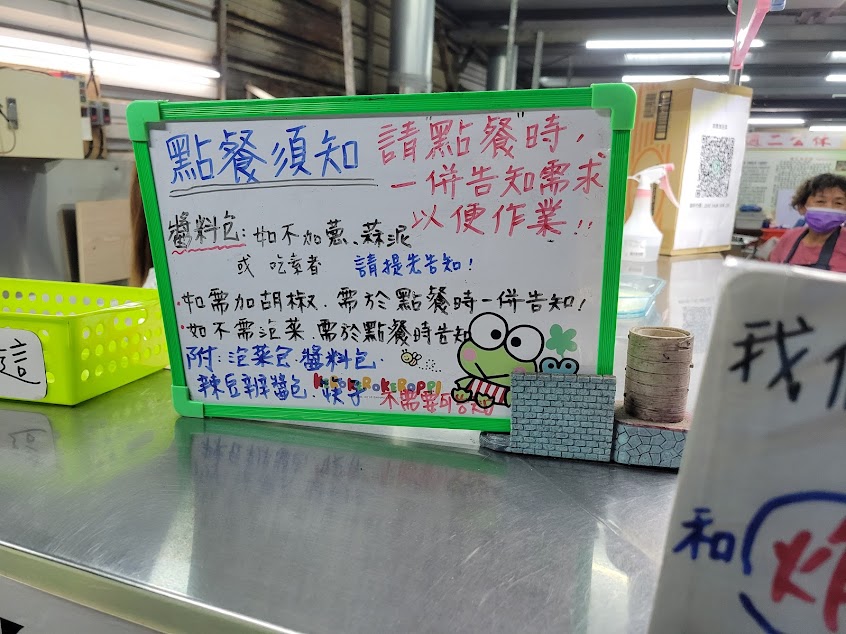 點餐須知
請"點餐"時,
一併告知需求
以便作業!!
醬料包:如不加蔥、蒜泥
或 吃素者 請提先告知!
·如需加胡椒、需於點餐時一併告知!
·如不需泡菜 需於點餐時告知
附:泡菜包、醬料包、
辣豆瓣醬包、筷子 不需要可告知
KEROKEROKEROPPI
這
我
和